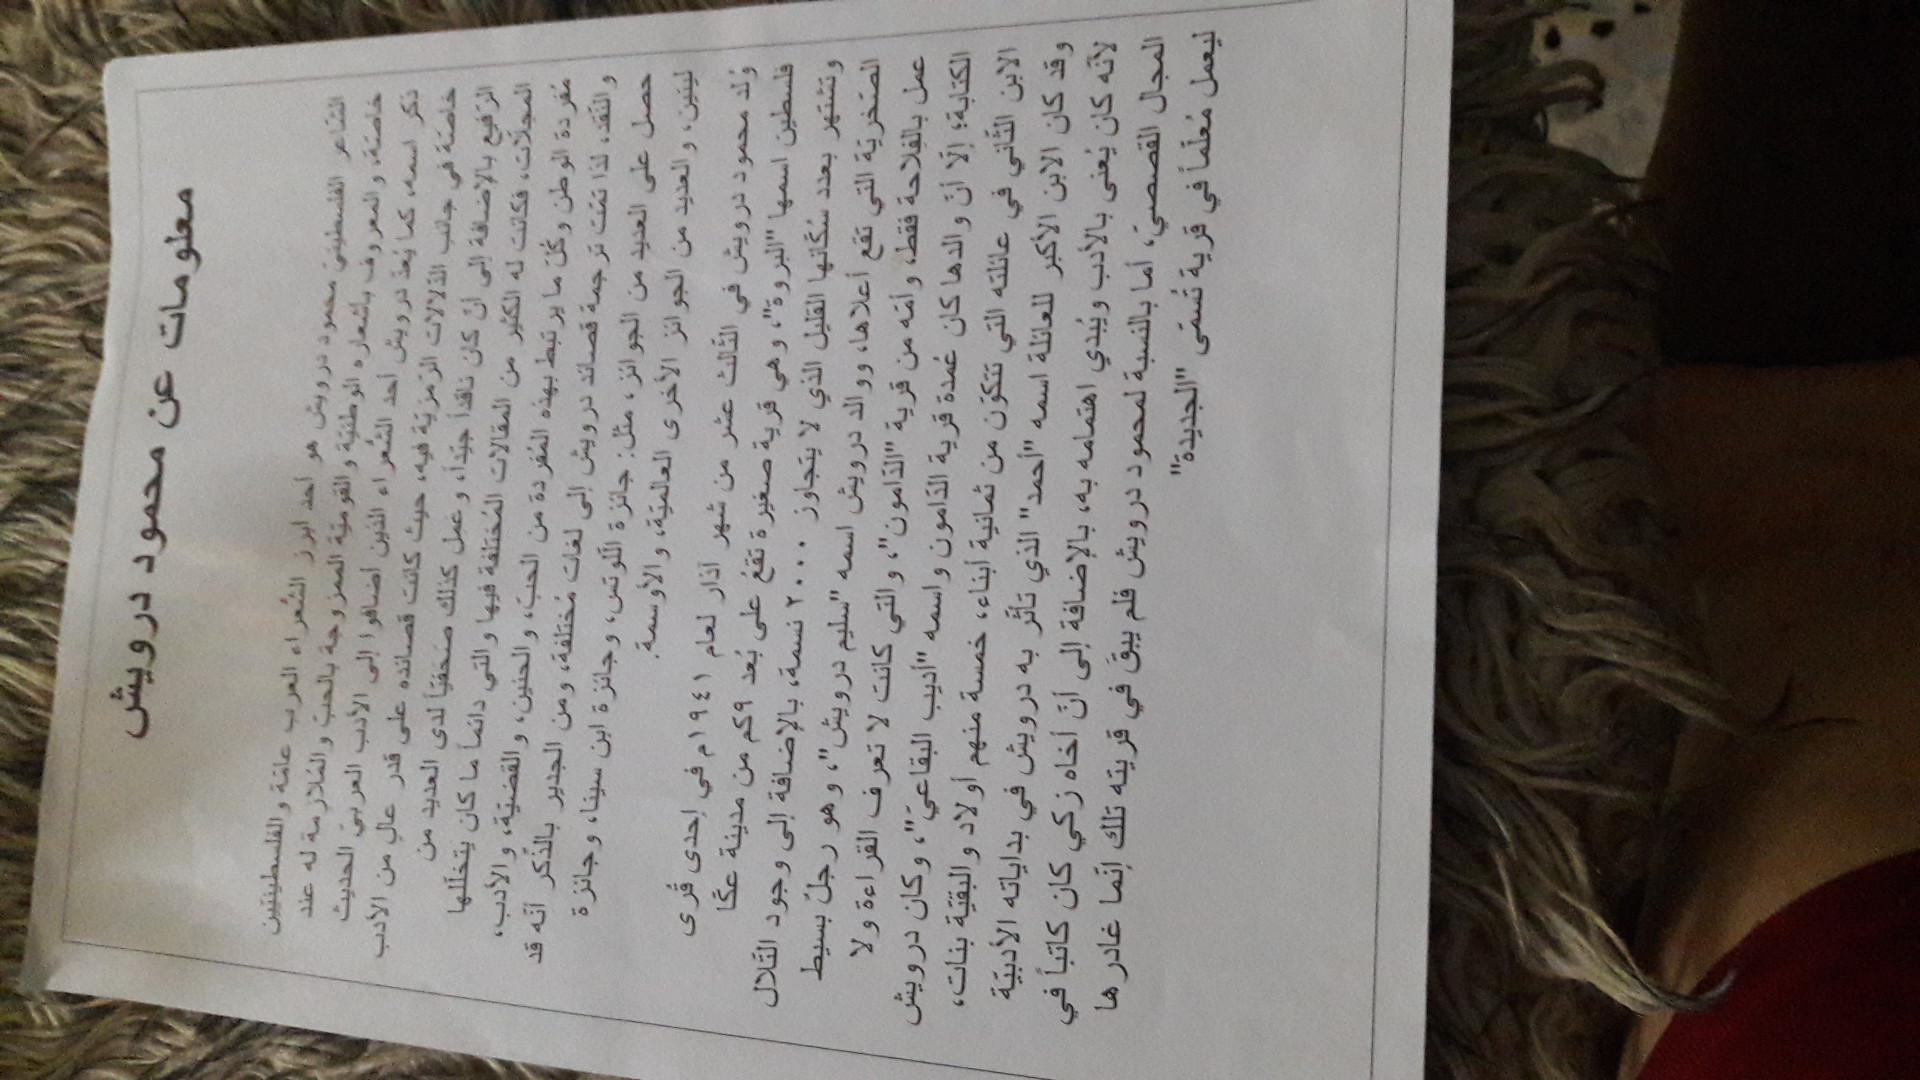 معلومات عن محمود درويش
الشاعر الفلسطينيّ محمود درويش هو أحد أبرز الشُعراء العرب عامّة والفلسطينيّين
خاصّة، والمعروف بأشعاره الوطنيّة والقوميّة الممزوجة بالحبّ والمُلازمة له عند
ذكر اسمه، كما يُعدّ درويش أحد الشُعراء الذين أضافوا إلى الأدب العربيّ الحديث
خاصّة في جانب الدّلالات الرّمزيّة فيه، حيث كانت قصائده على قدر عالٍ من الأدب
الرّفيع بالإضافة إلى أنّ كان ناقداً جيّداً، وعمل كذلك صَحَفيّاً لدى العديد من
المجلّات، فكانت له الكثير من المقالات المُختلفة فيها والتي دائماً ما كان يتخلّلها
مُفردة الوطن وكُلّ ما يرتبط بهذه المُفردة من الحبّ، والحنين، والقضيّة، والأدب،
والنّقد، لذا تمّت ترجمة قصائد درويش إلى لغات مُختلفة، ومن الجدير بالذّكر أنّه قد
حصل على العديد من الجوائز، مثل: جائزة اللّوتس، وجائزة ابن سينا، وجائزة
لينين، والعديد من الجوائز الأخرى العالميّة، والأوسمة.
وُلد محمود درويش في الثّالث عشر من شهر آذار لعام ١٩٤١م في إحدى قُرى
فلسطين اسمها "البروة"، وهي قرية صغيرة تقعُ على بُعد ٩كم من مدينة عكّا
وتشتهر بعدد سُكّانها القليل الذي لا يتجاوز ٢٠٠٠ نسمة، بالإضافة إلى وجود التّلال
الصّخريّة التي تقع أعلاها، ووالد درويش اسمه "سليم درويش"، وهو رجلٌ بسيط
عمل بالفِلاحة فقط، وأمّه من قرية "الدّامون"، والتي كانت لا تعرف القراءة ولا
الكتابة؛ إلّا أنّ والدها كان عُمدة قرية الدّامون واسمه "أديب البقاعيّ"، وكان درويش
الابن الثّاني في عائلته التي تتكوّن من ثمانية أبناء، خمسة منهم أولاد والبقيّة بنات،
وقد كان الابن الأكبر للعائلة اسمه "أحمد" الذي تأثّر به درويش في بداياته الأدبيّة
لأنّه كان يُعنى بالأدب ويُبدي اهتمامه به، بالإضافة إلى أنّ أخاه زكي كان كاتباً في
المجال القصصيّ، أما بالنسبة لمحمود درويش فلم يبقَ في قريته تلك إنّما غادرها
ليعمل مُعلّماً في قرية تُسمّى "الجديدة"